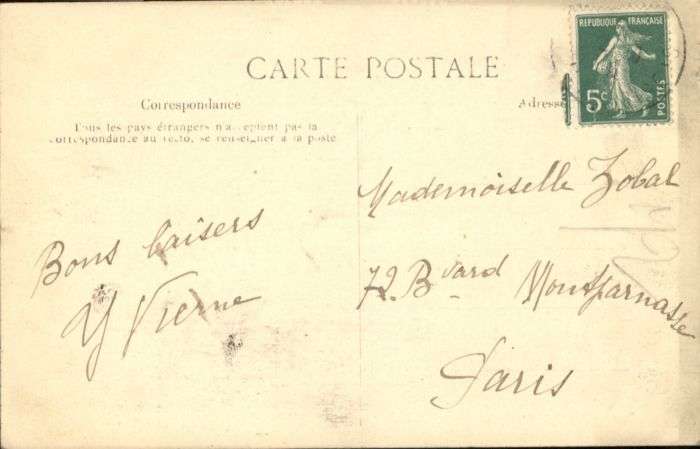 CARTE POSTALE
REPUBLIQUE FRANÇAISE
5c
POSTES
Correspondance
Tous les pays étrangers n'acceptent pas la
correspondance au recto, se renseigner à la poste
Adresse
Bons baisers
Y Vierne
Mademoiselle Zobal
72. Bvard Montparnasse
Paris